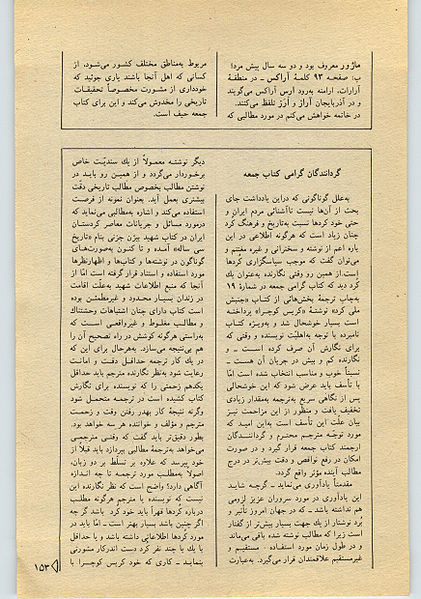 ماژور معروف بود و دو سه سال پیش مرد!
ب: صفحه ۹۳ کلمهٔ آراکس ـ در منطقهٔ
آرارات، ارامنه به‌رود ارس آراکس می‌گویند
و در آذربایجان آراز و آرَز تلفظ می‌کنند.
در خاتمه خواهش می‌کنم در مورد مطالبی که
مربوط به‌مناطق مختلف کشور می‌شود، از
کسانی که اهل آنجا باشند یاری جوئید که
خودداری از مشورت مخصوصاً تحقیقات
تاریخی را مخدوش می‌کند و این برای کتاب
جمعه حیف است.
گردانندگان گرامی کتاب جمعه
به‌علل گوناگونی که دراین یادداشت جای
بحث از آن‌ها نیست ناآشنائی مردم ایران و
حتی خود کردها نسبت به‌تاریخ و فرهنگ کرد
چنان زیاد است که هرگونه اطلاعی در این
باره اعم از نوشته و سخنرانی و غیره مغتنم و
می‌توان گفت که موجب سپاسگزاری کردها
است. از همین رو وقتی نگارنده به‌عنوان یك
کرد دید که کتاب گرامی جمعه در شمارهٔ ۱۹
به‌چاپ ترجمهٔ بخش‌هائی از کتاب «جنبش
ملی کرد» نوشتهٔ «کریس کوچرا» پرداخته
است بسیار خوشحال شد و به‌ویژه کتاب
نامبرده با توجه به‌اهلیّت نویسنده و وقتی که
برای نگارش آن صرف کرده است ـ و
نگارنده کم و بیش در جریان آن هست ـ
نسبتاً خوب و مناسب انتخاب شده است امّا
با تأسف باید عرض شود که این خوشحالی
پس از نگاهی سریع به‌ترجمه به‌مقدار زیادی
تخفیف یافت و منظور از این مزاحمت نیز
بیان علّت این تأسف است به‌این امید که
مورد توجّه مترجم محترم و گردانندگان
ارجمند کتاب جمعه قرار گیرد و در صورت
امکان در رفع نواقص و دقت بیش‌تر در درج
مطالب آینده مؤثر واقع گردد.
مقدمتاً یادآوری می‌نماید ـ گرچه شاید
این یادآوری در مورد سروران عزیز لزومی
هم نداشته باشد ـ که در جهان امروز تأثیر و
برد نوشتار از یك جهت بسیار بیش‌تر از گفتار
است زیرا که مطالب نوشته شده باقی می‌ماند
و در طول زمان مورد استفاده مستقیم و
غیرمستقیم علاقمندان قرار می‌گیرد. به‌عبارت
دیگر نوشته معمولاً از یك سندیّت خاص
برخوردار می‌گردد و از همین رو باید در
نوشتن مطالب بخصوص مطالب تاریخی دقّت
بیشتری بعمل آید. بعنوان نمونه از فرصت
استفاده می‌کند و اشاره به‌مطالبی می‌نماید که
درمورد مسائل و جریانات معاصر کردستان
ایران در کتاب شهید بیژن جزنی بنام «تاریخ
سی ساله» آمده و تا کنون به‌صورت‌های
گوناگون در نوشته‌ها و کتاب‌ها و اظهارنظرها
مورد استفاده و استناد قرار گرفته است امّا از
آنجا که منبع اطلاعات شهید به‌علت اقامت
در زندان بسیار محدود و غیرمطمئن بوده
است کتاب دارای چنان اشتباهات وحشتناك
و مطالب مغلوط و غیرواقعی است که
به‌راستی هرگونه کوشش در راه تصحیح آن را
هم بی‌نتیجه می‌سازد. به‌هرحال برای این که
در یك کار ترجمه حداقل دقت و امانت
رعایت شود به‌نظر نگارنده مترجم باید حداقل
یکدهم زحمتی را که نویسنده برای نگارش
کتاب کشیده است در ترجمه متحمل شود
وگرنه نتیجهٔ کار بهدر رفتن وقت و زحمت
مترجم و مؤلف و خواننده هر سه خواهد بود.
بطور دقیق‌تر باید گفت که وقتی مترجمی
می‌خواهد به‌ترجمهٔ مطالبی بپردازد باید قبلاً از
خود بپرسد که علاوه بر تسلّط بر دو زبان،
اصولاً به‌مطلب مورد ترجمه تا چه اندازه
آگاهی دارد؟ واضح است که نظر نگارنده این
نیست که نویسنده یا مترجم هرگونه مطلب
درباره کردها قهراً باید خود کرد باشد گر چه
اگر چنین باشد بسیار بهتر است ـ امّا باید در
مورد کردها اطلاعاتی داشته باشد و یا حداقل
با یك یا چند نفر کرد دست اندرکار مشورتی
بنماید ـ کاری که خود کریس کوچرا با
۱۵۳